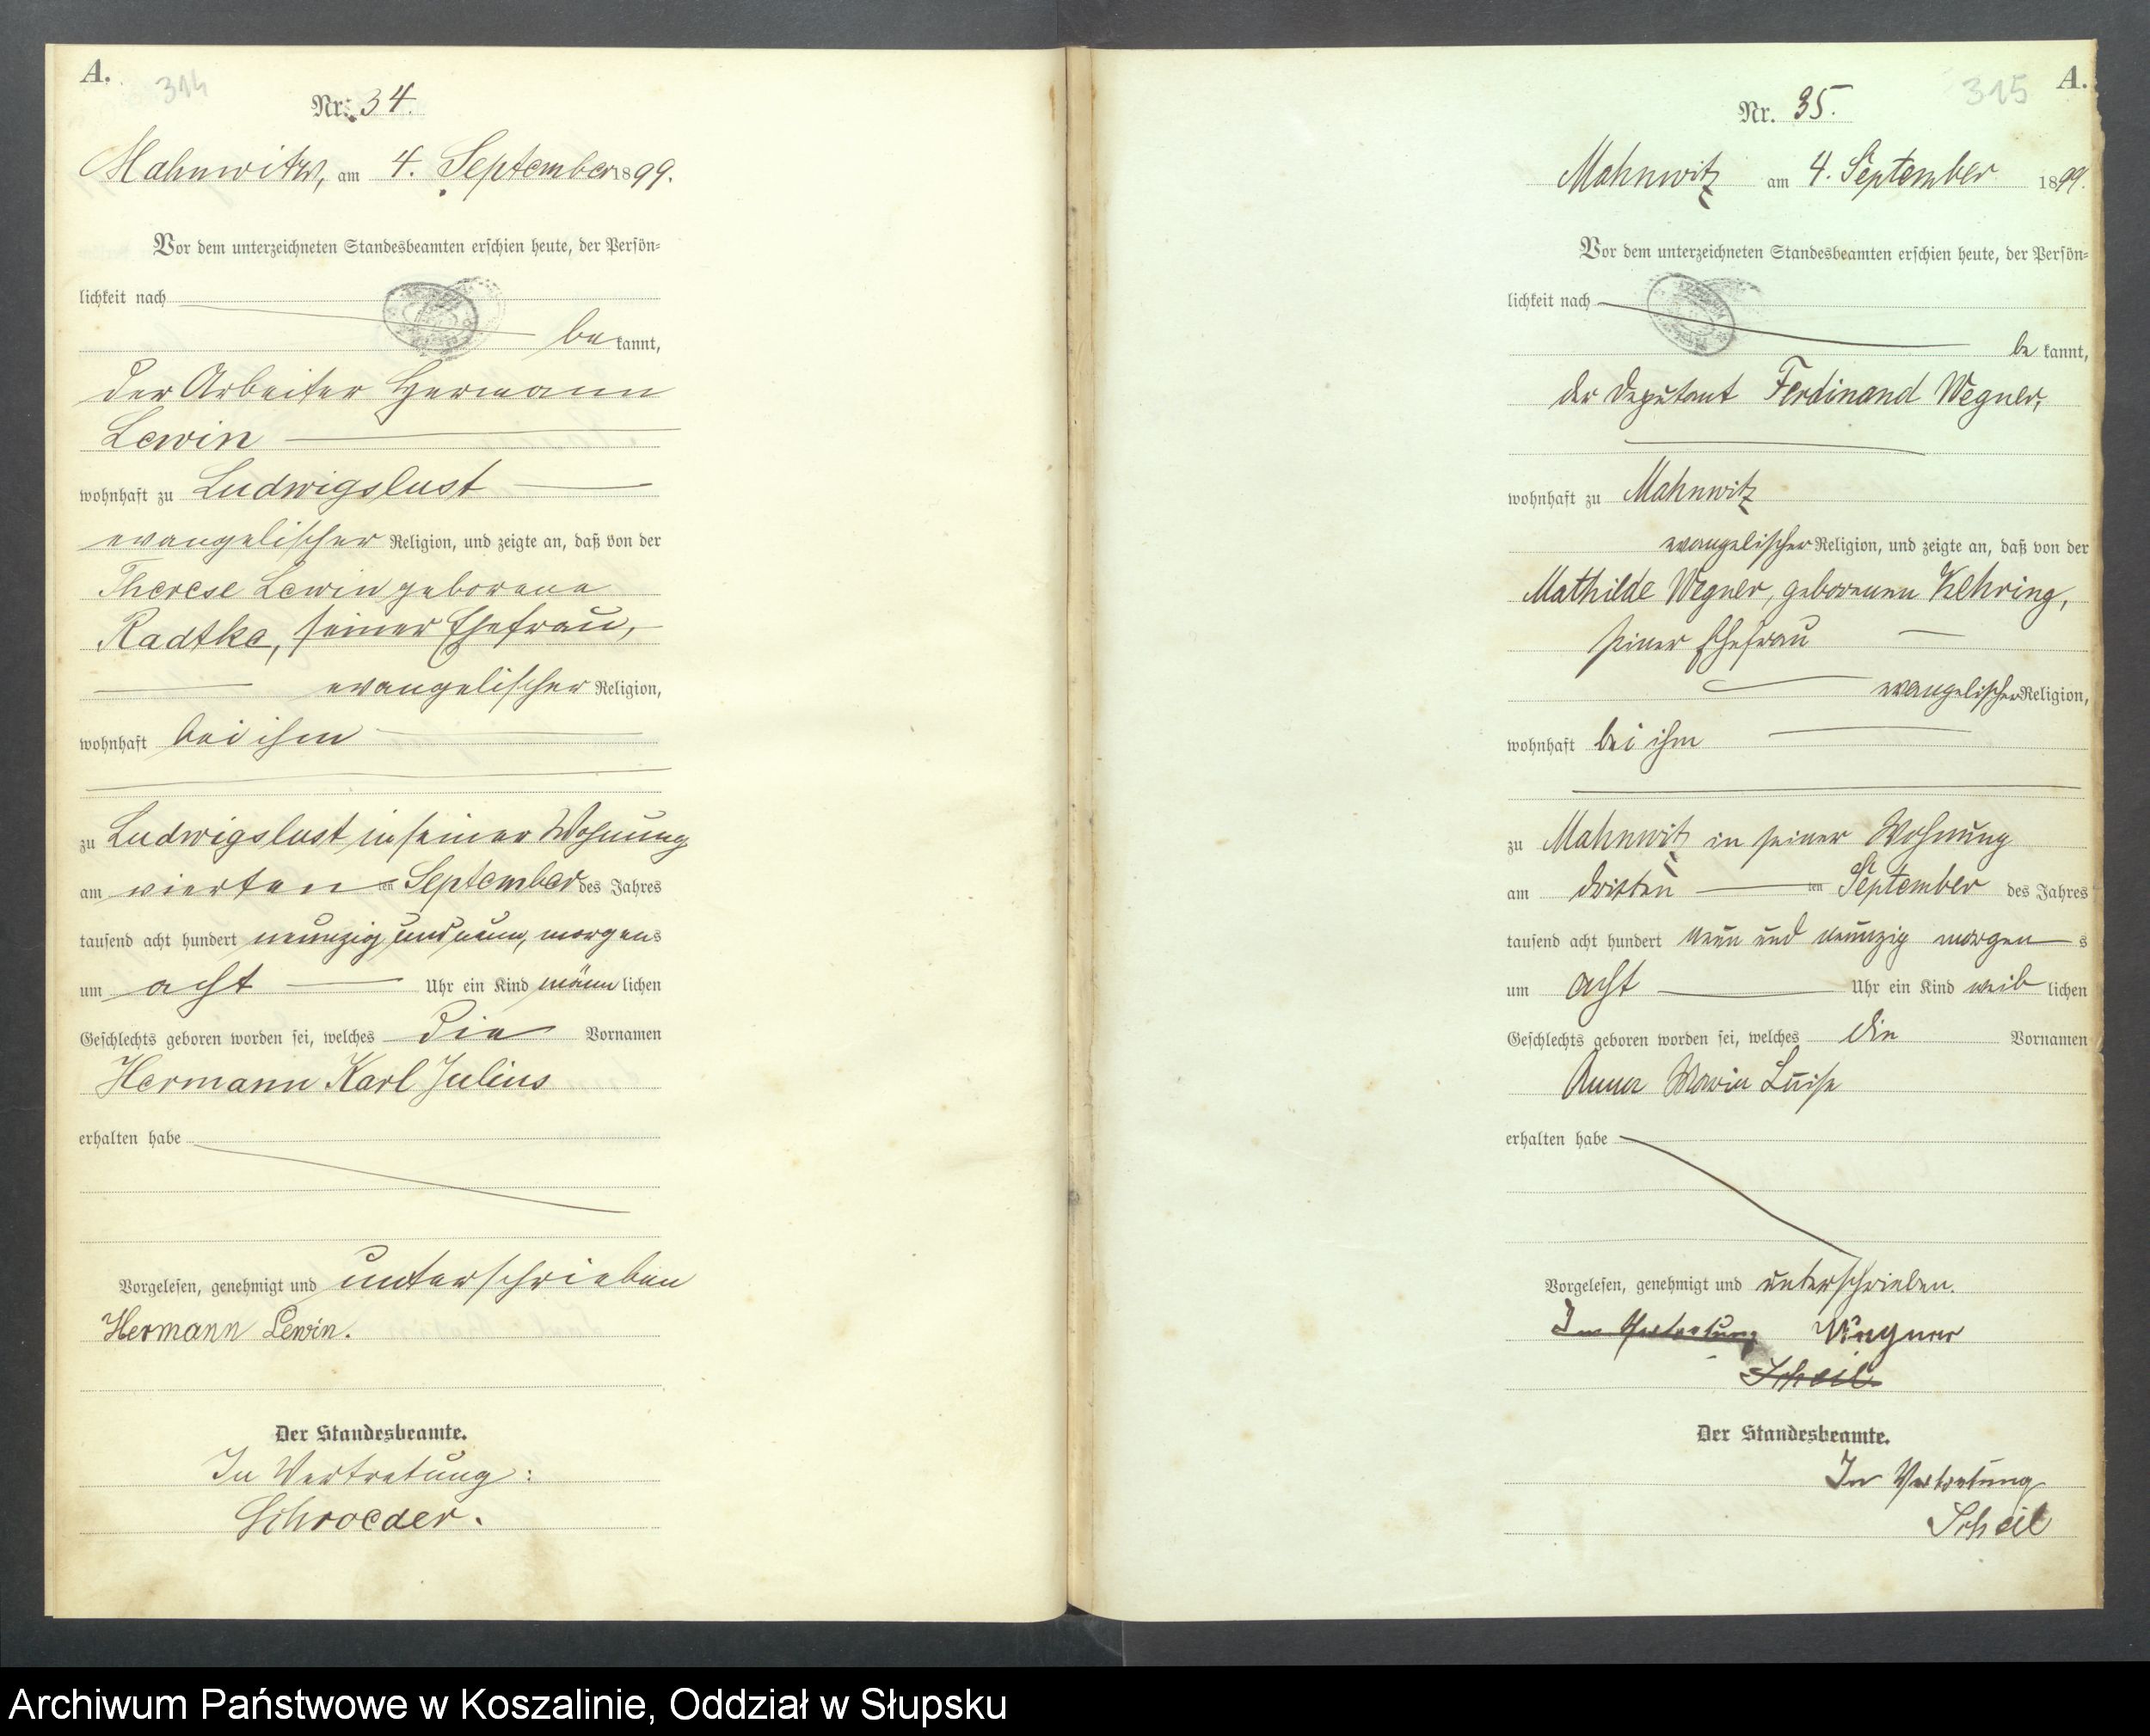 A.
314
Nr. 34.
Mahnwitz, am 4. September 1899.
Vor dem unterzeichneten Standesbeamten erschien heute, der Persön-
lichkeit nach
bekannt,
der Arbeiter Hermann
Lewin
wohnhaft zu Ludwigslust
evangelischer Religion, und zeigte an, daß von der
Therese Lewin geborene
Radtke, seiner Ehefrau,
evangelischer Religion,
wohnhaft bei ihm
zu Ludwigslust in seiner Wohnung
am vierten ten September des Jahres
tausend acht hundert neunzig und neun, morgens
um acht Uhr ein Kind männlichen
Geschlechts geboren worden sei, welches die Vornamen
Hermann Karl Julius
erhalten habe
Vorgelesen, genehmigt und unterschrieben
Hermann Lewin.
Der Standesbeamte.
In Vertretung:
Schroeder.
315
A.
Nr. 35.
Mahnwitz am 4. September 1899.
Vor dem unterzeichneten Standesbeamten erschien heute, der Persön-
lichkeit nach
bekannt,
der Deputant Ferdinand Wegner,
wohnhaft zu Mahnwitz
evangelischer Religion, und zeigte an, daß von der
Mathilde Wegner, geborenen Kehring,
seiner Ehefrau
evangelischer Religion,
wohnhaft bei ihm
zu Mahnwitz in seiner Wohnung
am dritten ten September des Jahres
tausend acht hundert neun und neunzig morgens
um acht Uhr ein Kind weiblichen
Geschlechts geboren worden sei, welches die Vornamen
Anna Marie Luise
erhalten habe
Vorgelesen, genehmigt und unterschrieben.
In Vertretung Wegner
Scheil
Der Standesbeamte.
In Vertretung
Scheil
Archiwum Państwowe w Koszalinie, Oddział w Słupsku